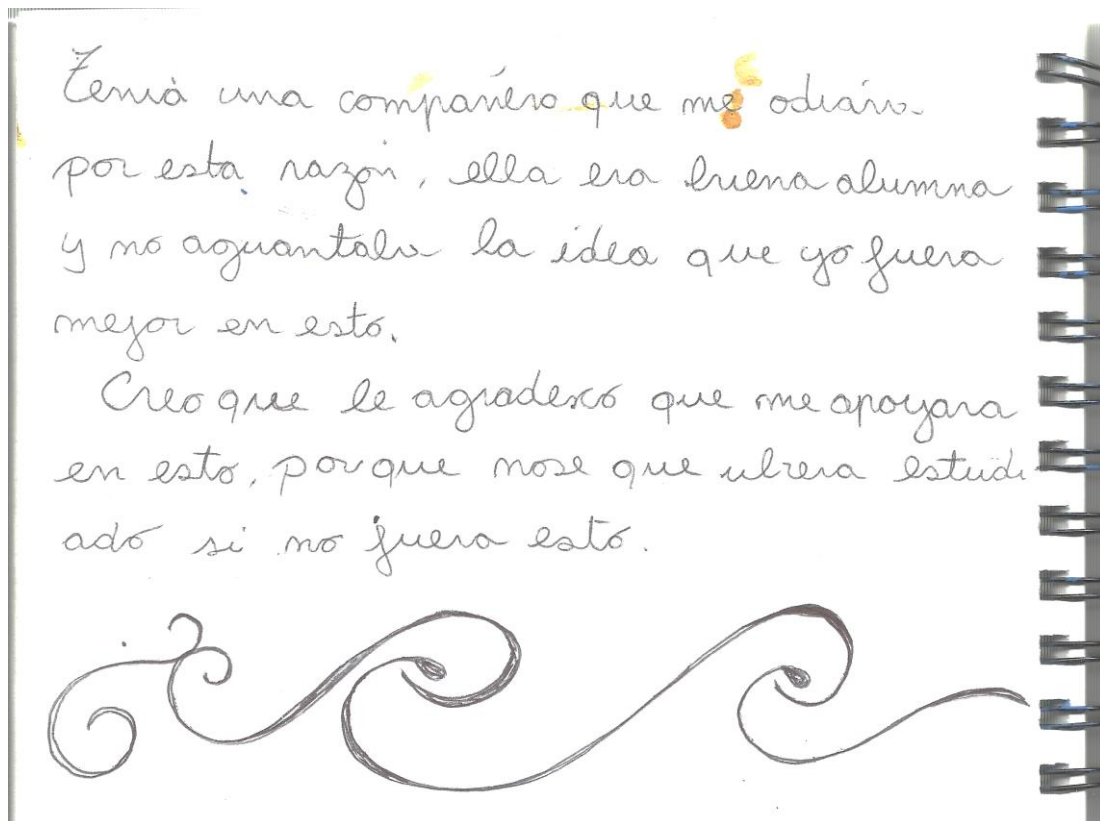 Tenià una compañera que me odiava
por esta razón, ella era buena alumna
y no aguantaba la idea que yo fuera
mejor en esto.
Creo que le agradesco que me apoyara
en esto, porque nose que ubiera estudi-
ado si no fuera esto.